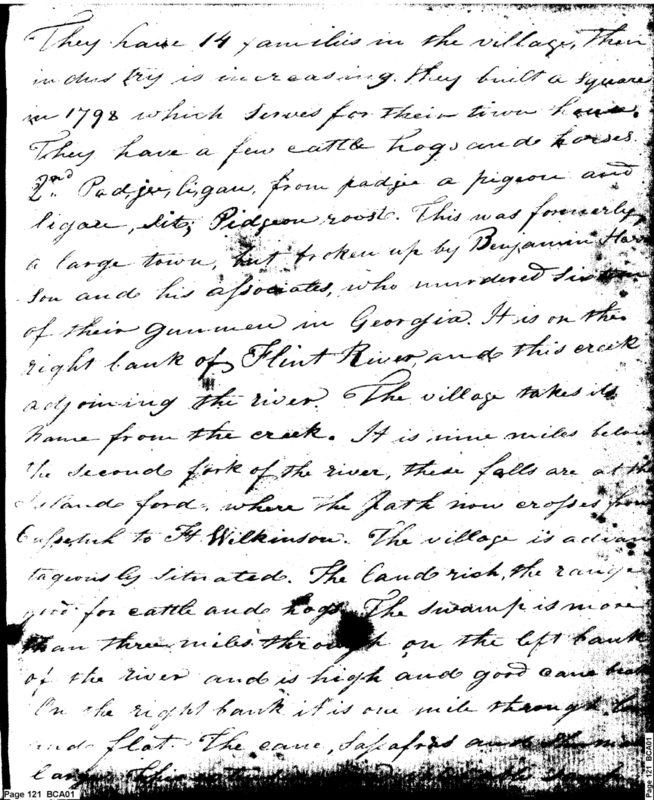 They have 14 families in the village, Their
industry is increasing. they built a square
in 1798 which serves for their town house.
They have a few cattle hogs and horses.
2nd. Padjee, ligau, from padjee a pigeon and
ligau, sit; Pidgeon roost. This was formerly
a large town, but broken up by Benjamin Harri
son and his associates, who murdered sixteen
of their gunmen in Georgia. It is on the
right bank of Flint River, and this creek
adjoining the river. The village takes its
name from the creek. It is nine miles below
the second fork of the river, these falls are at the
Island ford, where the path now crosses from
Cussetuh to Ft Wilkinson. The village is advan
tageously situated. The land rich, the range
good for cattle and hogs. The swamp is more
than three miles through on the left bank
of the river and is high and good cane
On the right bank it is one mile through, low
and flat. The cane, Sasafras and
large.
Page 121 BCA01
Page 121 BCA01